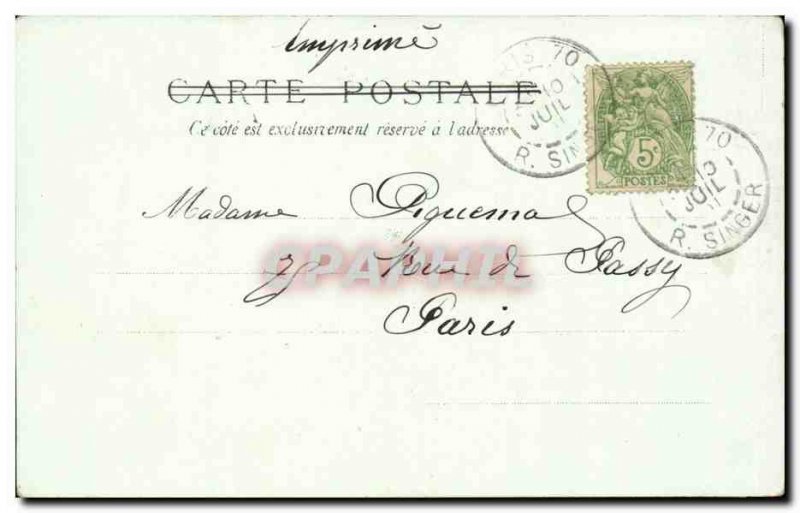 Imprimé
CARTE POSTALE
Ce côté est exclusivement réservé à l'adresse
5c
POSTES
70
10
JUIL
R. SING
70
10
JUIL
R. SINGER
Madame Piquemal
Rue de Passy
Paris
CPAPHIL